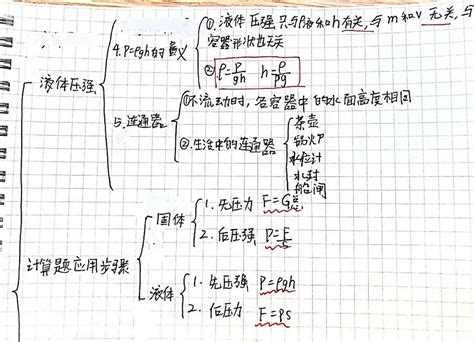 ①液体压强只与ρ液和h有关,与m和v无关,与
容器形状也无关
4.P=ρgh的意义
②ρ=P/gh h=P/ρg
液体压强
5.连通器
①不流动时,各容器中的水面高度相同
②生活中的连通器
茶壶
锅炉
水位计
水封
船闸
计算题应用步骤
固体
1.先压力 F=G总
2.后压强 P=F/S
液体
1.先压强 P=ρgh
2.后压力 F=ps